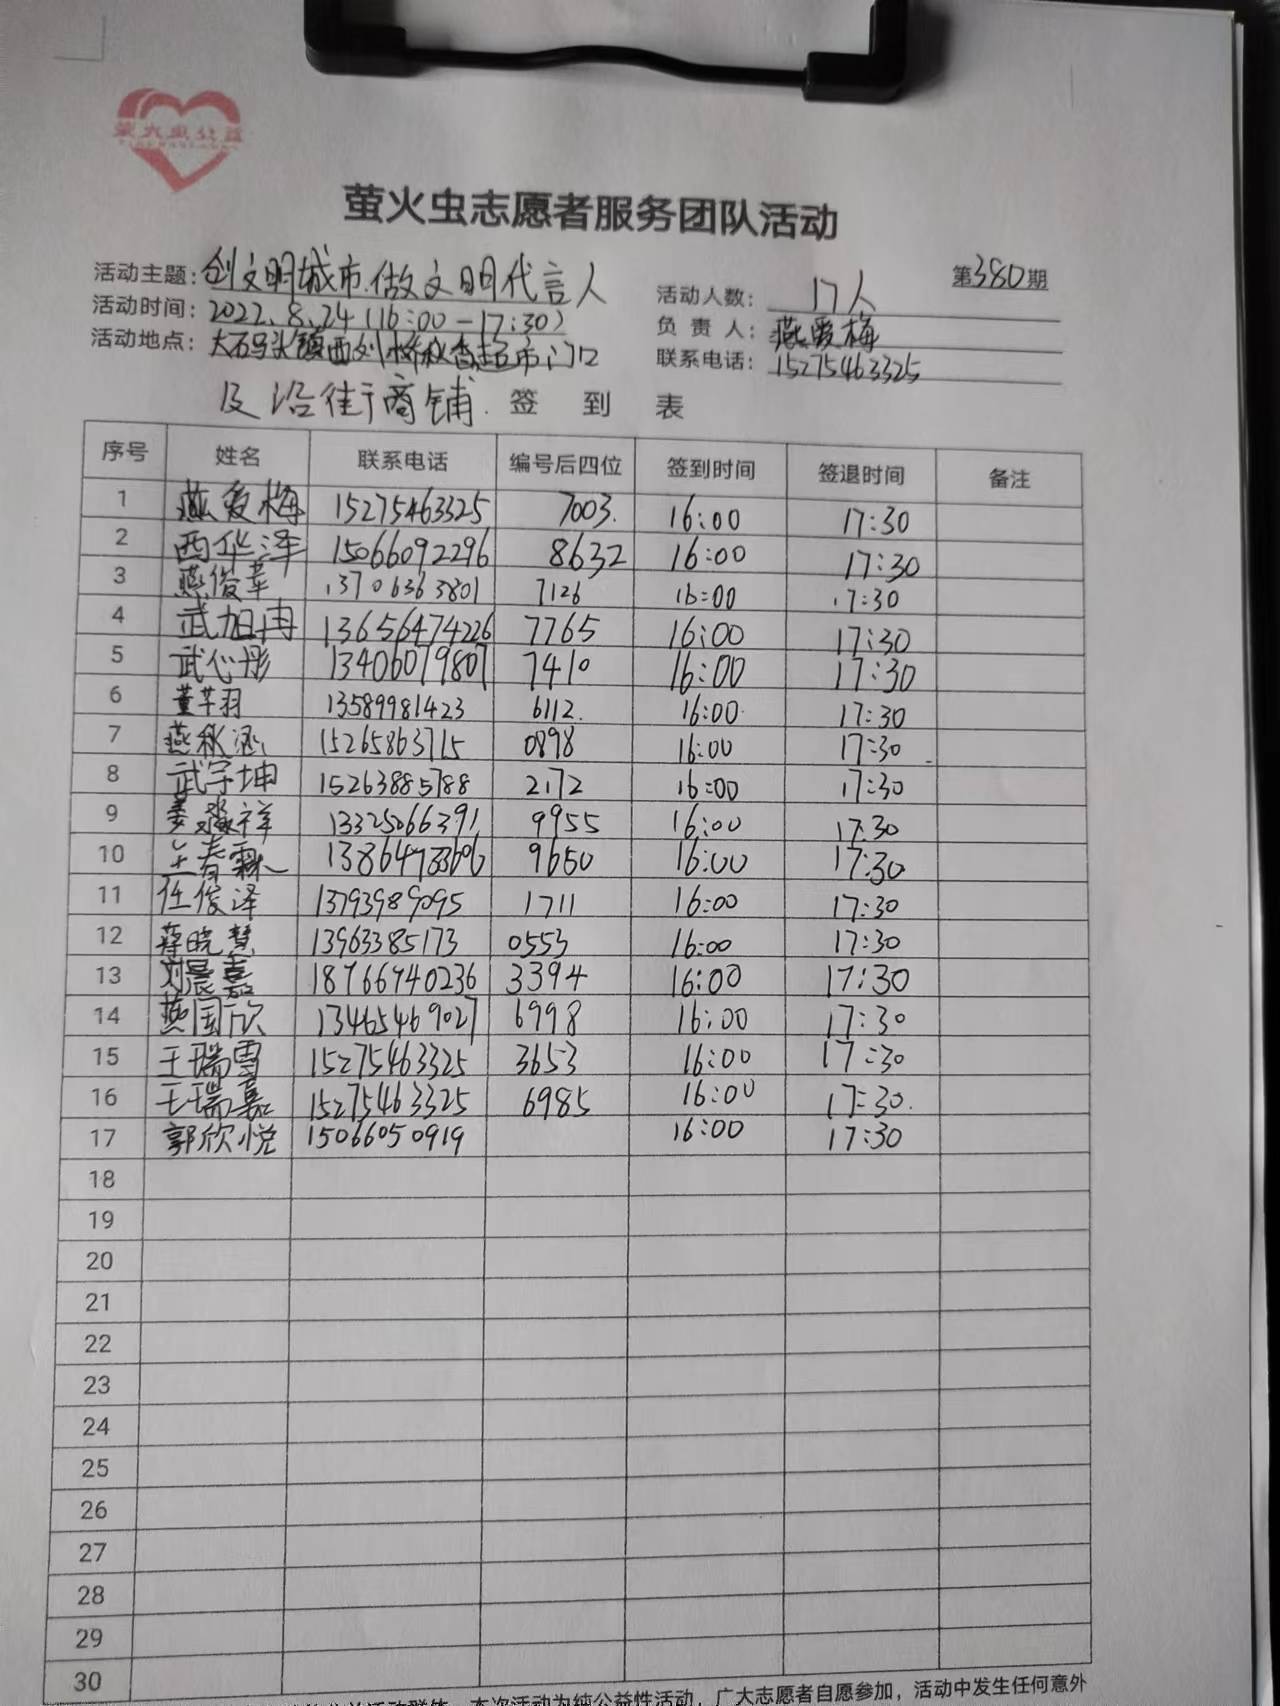 萤火虫公益
萤火虫志愿者服务团队活动
第380期
活动主题：创文明城市.做文明代言人
活动人数：17人
活动时间：2022.8.24（16:00-17:30）
负责人：燕爱梅
活动地点：大码头镇西刘桥秋香超市门口
联系电话：15275463325
及沿街商铺.
签到表
序号 姓名 联系电话 编号后四位 签到时间 签退时间 备注
1 燕爱梅 15275463325 7003. 16:00 17:30
2 西华泽 15066092296 8632 16:00 17:30
3 燕俊苹 13706363801 7126 16:00 17:30
4 武旭冉 13656474226 7765 16:00 17:30
5 武心彤 13406019807 7410 16:00 17:30
6 董芊羽 13589981423 6112. 16:00 17:30
7 燕秋涵 15265863715 0898 16:00 17:30
8 武宇坤 15263885788 2172 16:00 17:30
9 姜淼祥 13325066391 9955 16:00 17:30
10 王春霖 9650 16:00 17:30
11 任俊泽 13793989095 1711 16:00 17:30
12 蒋晓慧 13963385173 0553 16:00 17:30
13 刘晨嘉 18766740236 3394 16:00 17:30
14 燕国欣 13465469027 6998 16:00 17:30
15 王瑞雪 15275463325 3653 16:00 17:30
16 王瑞嘉 15275463325 6985 16:00 17:30.
17 郭欣悦 15066050919 16:00 17:30
18
19
20
21
22
23
24
25
26
27
28
29
30
本次活动为纯公益性活动，广大志愿者自愿参加，活动中发生任何意外